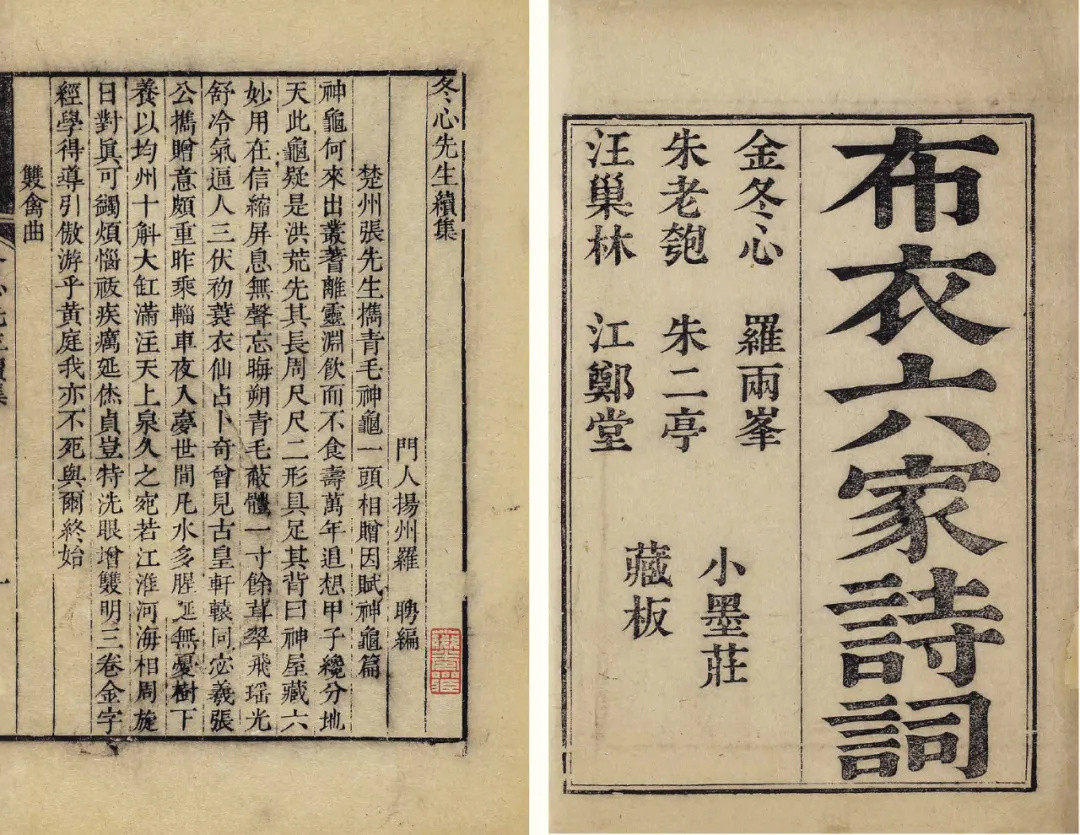 布衣六家詩詞
金冬心 羅兩峯
朱老匏 朱二亭
汪巢林 江鄭堂
小墨莊
藏板
冬心先生續集
門人揚州羅 聘編
楚州張先生擕青毛神龜一頭相贈因賦神龜篇
神龜何來出叢蓍離靈淵飲而不食壽萬年追想甲子纔分地
天此龜疑是洪荒先其長周尺尺二形具足其背曰神屋藏六
妙用在信縮屏息無聲忘晦朔青毛蔽體一寸餘茸翠飛瑶光
舒冷氣逼人三伏初蓑衣仙占卜奇曾見古皇軒轅同宓羲張
公擕贈意頗重昨乘輜車夜入夢世間凡水多腥涎無憂樹下
養以均州十斛大缸滿汪天上泉久之宛若江淮河海相周旋
日對眞可蠲煩惱祓疾癘延休貞豈特洗眼增雙明三卷金字
經學得導引傲游乎黃庭我亦不死與爾終始
雙禽曲
心先生續集
一